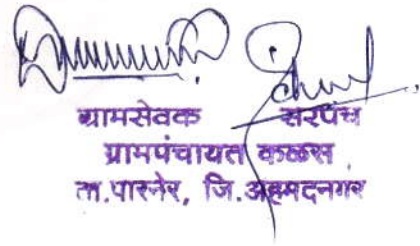 ग्रामसेवक सरपंच
ग्रामपंचायत कळस
ता.पारनेर, जि.अहमदनगर